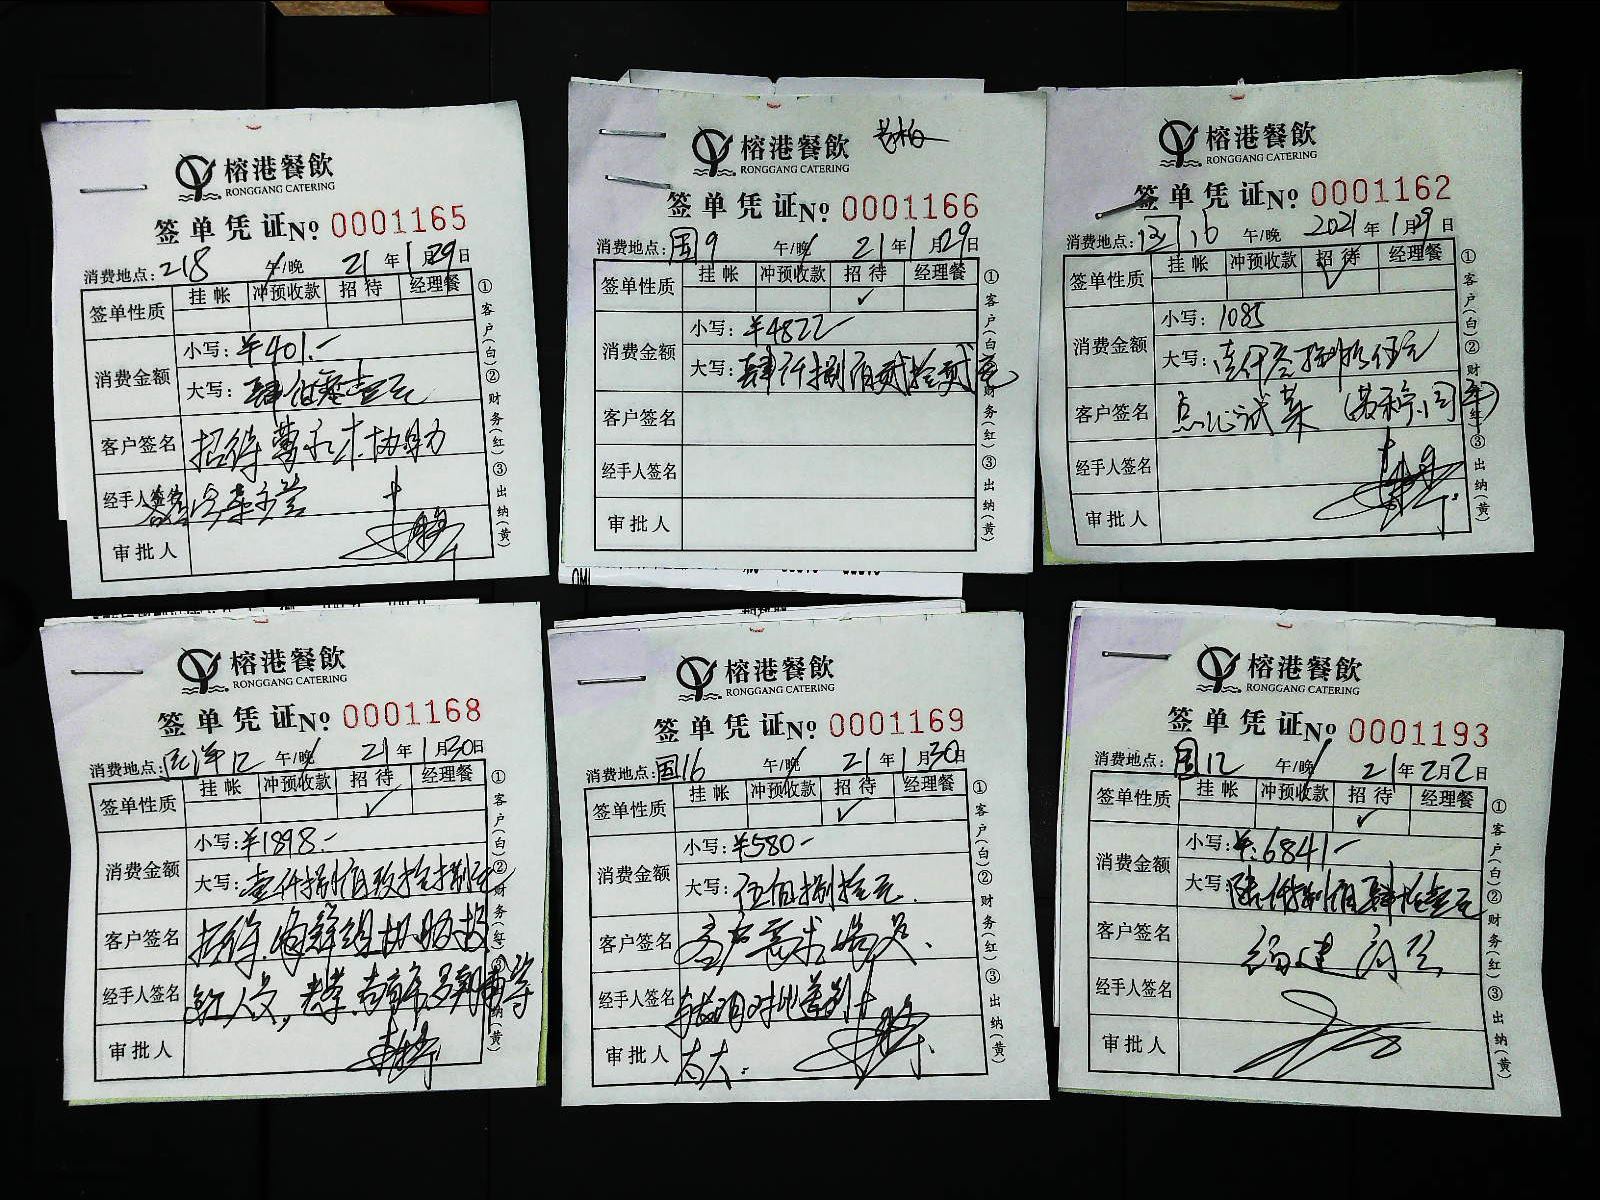 榕港餐飲
RONGGANG CATERING
签单凭证No 0001165
消费地点:218 午/晚 21年1月29日
签单性质 挂帐 冲预收款 招待 经理餐
消费金额
小写:¥401.-
大写:肆佰零壹元
客户签名 招待
经手人签名
审批人
①客户(白)②财务(红)③出纳(黄)
榕港餐飲
RONGGANG CATERING
签单凭证No 0001166
消费地点:国9 午/晚 21年1月29日
签单性质 挂帐 冲预收款 招待 经理餐
✓
消费金额
小写:¥4822-
大写:肆仟捌佰贰拾贰元
客户签名
经手人签名
审批人
①客户(白)②财务(红)③出纳(黄)
榕港餐飲
RONGGANG CATERING
签单凭证No 0001162
消费地点: 16 午/晚 2021年1月29日
签单性质 挂帐 冲预收款 招待 经理餐
✓
消费金额
小写:1085
大写:壹仟零捌拾伍元
客户签名 点心试菜
经手人签名
审批人
①客户(白)②财务(红)③出纳(黄)
榕港餐飲
RONGGANG CATERING
签单凭证No 0001168
消费地点: 午/晚 21年1月30日
签单性质 挂帐 冲预收款 招待 经理餐
✓
消费金额
小写:¥1898.-
大写:壹仟捌佰玖拾捌元
客户签名 招待
经手人签名
审批人
①客户(白)②财务(红)③出纳(黄)
榕港餐飲
RONGGANG CATERING
签单凭证No 0001169
消费地点:国16 午/晚 21年1月30日
签单性质 挂帐 冲预收款 招待 经理餐
✓
消费金额
小写:¥580-
大写:伍佰捌拾元.
客户签名 客户需求
经手人签名
审批人 太大.
①客户(白)②财务(红)③出纳(黄)
榕港餐飲
RONGGANG CATERING
签单凭证No 0001193
消费地点:国12 午/晚 21年2月2日
签单性质 挂帐 冲预收款 招待 经理餐
✓
消费金额
小写:¥:6841-
大写:陆仟捌佰肆拾壹元
客户签名 福建
经手人签名
审批人
①客户(白)②财务(红)③出纳(黄)